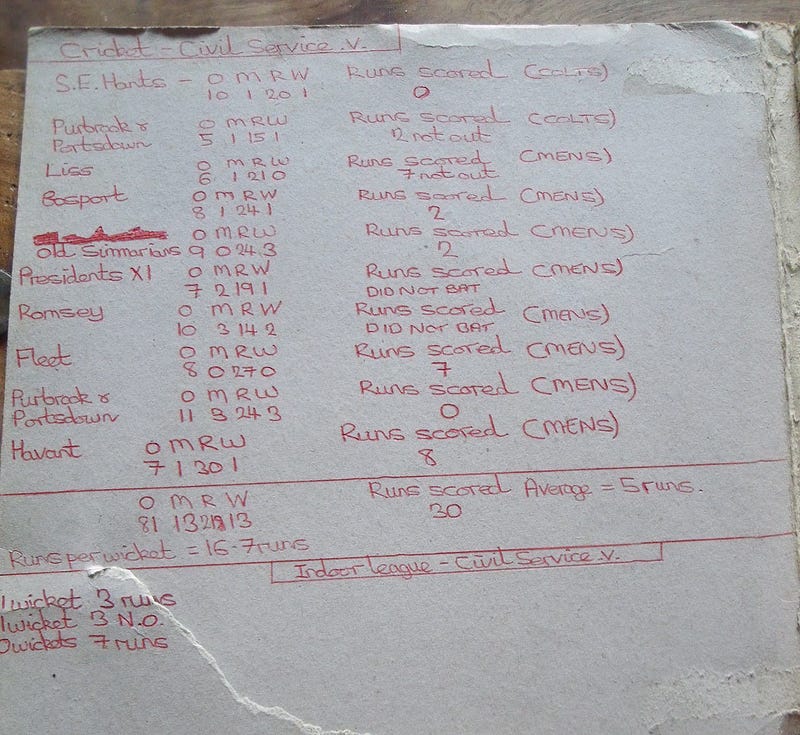 Cricket - Civil Service .v.
S.E. Hants - O M R W Runs scored (COLTS)
10 1 20 1 0
Purbrook & O M R W Runs scored (COLTS)
Portsdown 5 1 15 1 2 not out
Liss O M R W Runs scored (MENS)
6 1 21 0 7 not out
Gosport O M R W Runs scored (MENS)
8 1 24 1 2
O M R W Runs scored (MENS)
Old Simmarians 9 0 24 3 2
Presidents XI O M R W Runs scored (MENS)
7 2 19 1 DID NOT BAT
Romsey O M R W Runs scored (MENS)
10 3 14 2 DID NOT BAT
Fleet O M R W Runs scored (MENS)
8 0 27 0 7
Purbrook & O M R W Runs scored (MENS)
Portsdown 11 3 24 3 0
Havant O M R W Runs scored (MENS)
7 1 30 1 8
O M R W Runs scored Average = 5 runs.
81 13 218 13 30
Runs per wicket = 16.7 runs
Indoor league - Civil Service .v.
1 wicket 3 runs
1 wicket 3 N.O.
0 wickets 7 runs